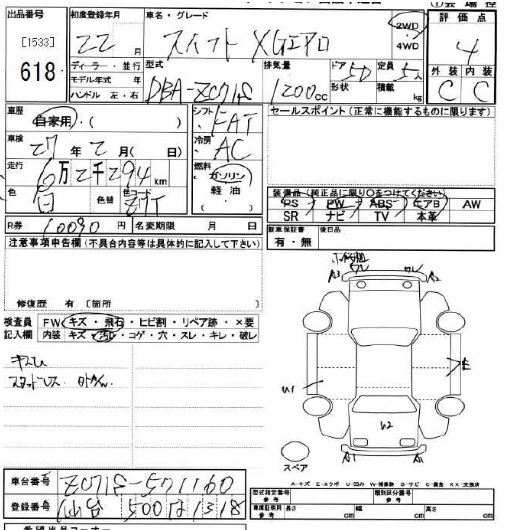 出品番号 初度登録年月 車名・グレード 2WD 4WD 評価点
[1533] 22 月 スイフト XGエアロ 4
618 ディーラー・並行 型式 排気量 ドア 5D 形状 定員 5人 積載 kg 外装 内装
モデル年式 年 DBA-ZC71S 1200cc C C
ハンドル 左・右
車歴 自家用・( ) シフト FAT セールスポイント (正常に機能するものに限ります)
車検 27年2月(日) 冷房 AC
走行 6万2千294km 燃料 ガソリン 軽油
色 白 色替 色コード ZJT 装備品(純正品に限り○をつけてください)
PS PW ABS エアB AW
SR ナビ TV 本革
R券 10090円 名変期限 月 日 新車保証書 後日品
有・無
注意事項申告欄(不具合内容等は具体的に記入して下さい)
A3 A2
修復歴 有 [箇所
検査員 FW キズ・飛石・ヒビ割・リペア跡・×要
記入欄 内装 キズ・汚レ・コゲ・穴・スレ・キレ・破レ
U1 E
スタッドレス
U2
A1 A2
スペア
車台番号 ZC71S-571160
登録番号 仙台 500 1318
型式指定番号 参考 類別区分番号 参考
車検証記載 参考 長さ cm 幅 cm 高さ cm